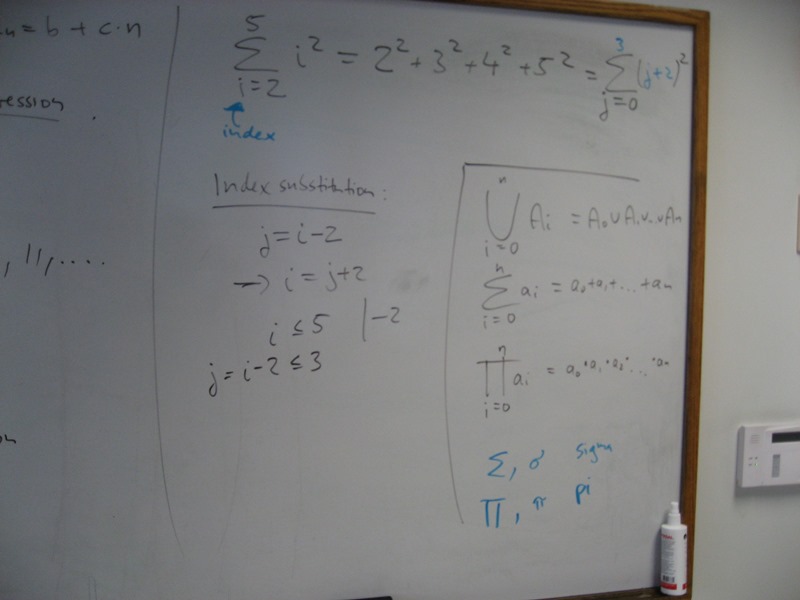 n = b + c·n
ession
, 11, ....
on
5
∑ i² = 2² + 3² + 4² + 5² = ∑ (j+2)²
i=2
3
j=0
index
Index substitution:
j = i-2
→ i = j+2
i ≤ 5 | -2
j = i-2 ≤ 3
n
⋃ Ai = A₀ ∪ A₁ ∪ .. ∪ An
i=0
n
∑ ai = a₀ + a₁ + ... + an
i=0
n
∏ ai = a₀ · a₁ · a₂ · ... · an
i=0
Σ, σ sigma
Π, π pi